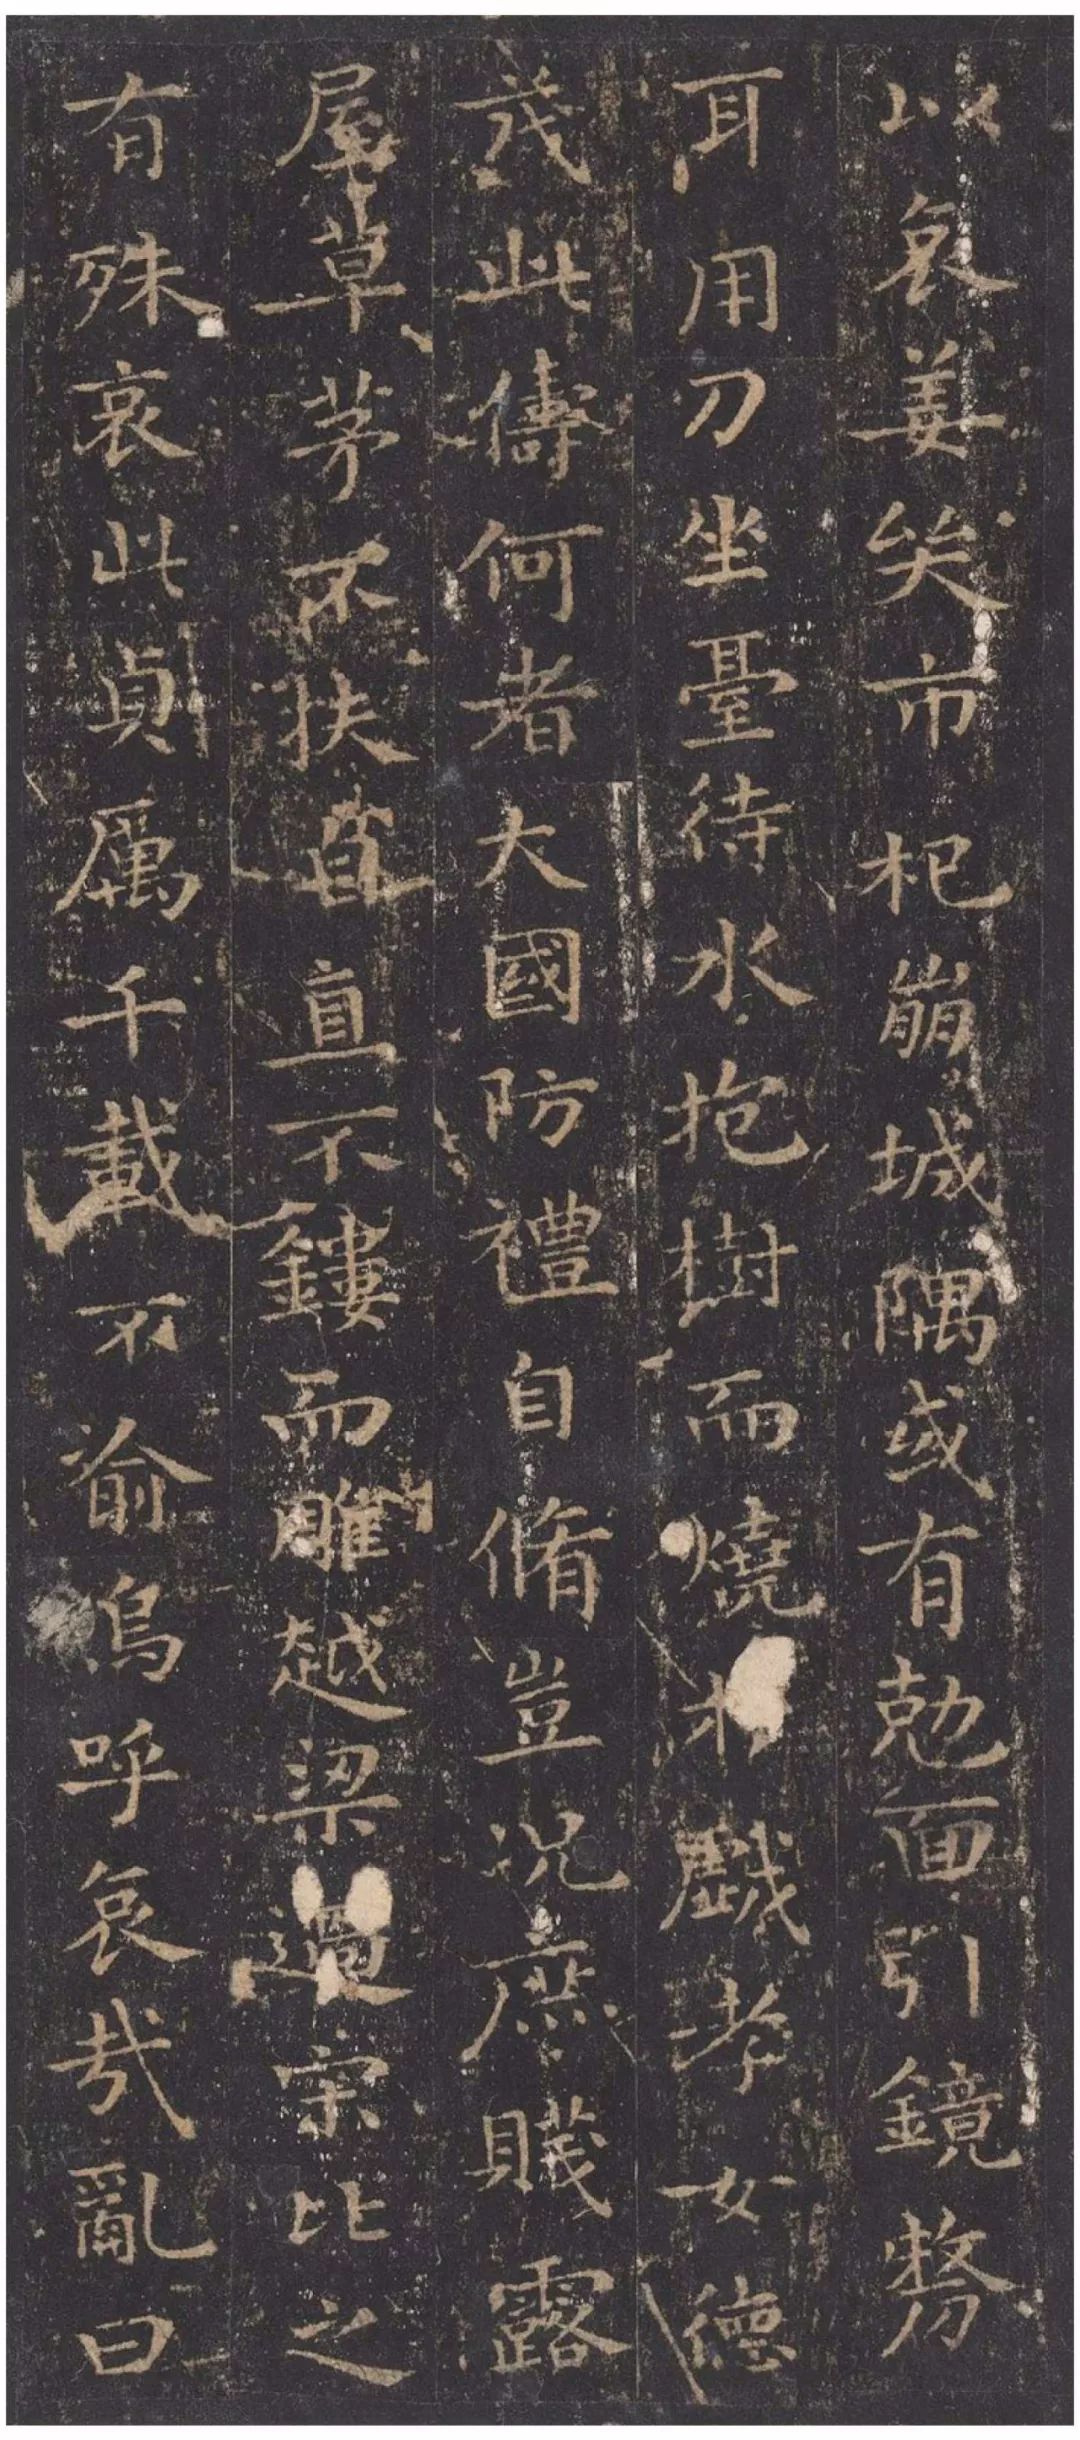 以哀姜哭市杞崩城隅或有勊面引鏡剺
耳用刀坐臺待水抱樹而燒於戲孝女德
茂此儔何者大國防禮自脩豈況庶賤露
屋草茅不扶自直不鏤而雕越梁過宋比之
有殊哀此貞厲千載不俞烏呼哀哉亂曰